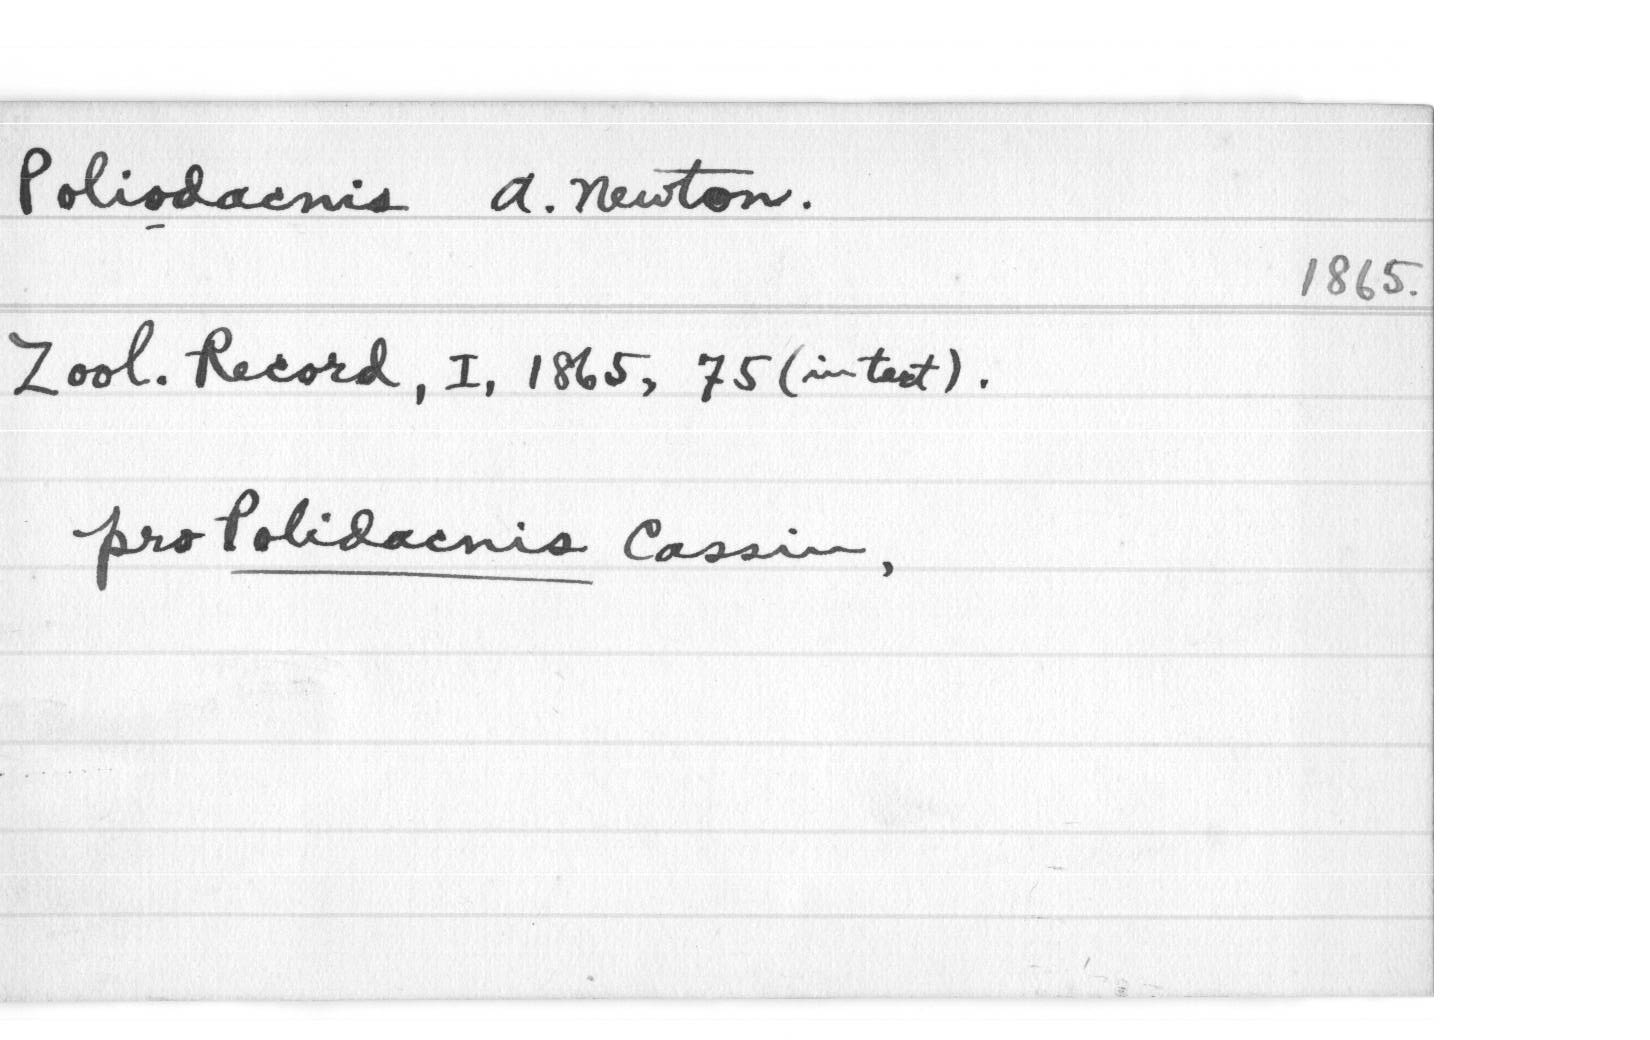 Poliodacnis A. Newton.
1865.
Zool. Record, I, 1865, 75 (in text).
pro Polidacnis Cassin,